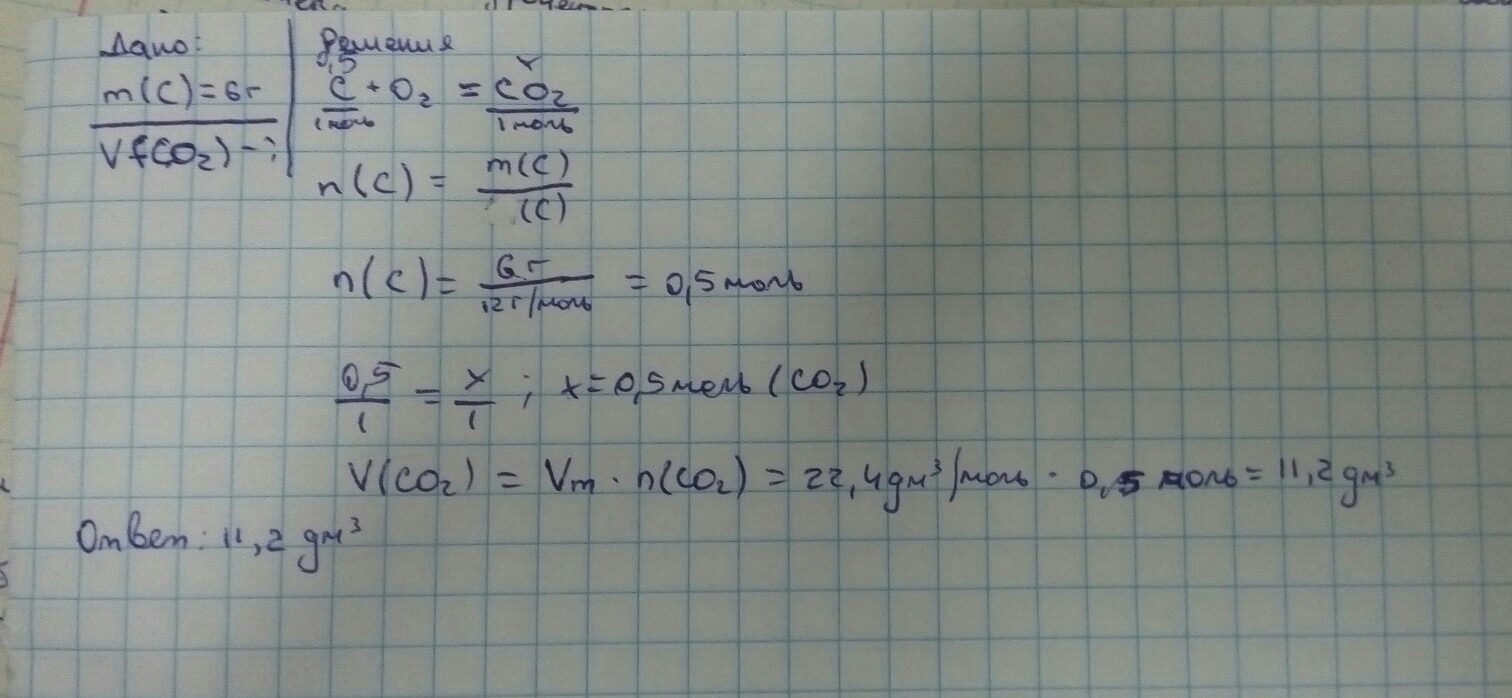 Дано:
m(C)=6г
V(CO₂)-?
Решения
0,5 x
C + O₂ = CO₂
1 моль 1 моль
n(C) = m(C) / (C)
n(C) = 6г / 12г/моль = 0,5 моль
0,5/1 = x/1 ; x=0,5 моль (CO₂)
V(CO₂) = Vm · n(CO₂) = 22,4 дм³/моль · 0,5 моль = 11,2 дм³
Ответ: 11,2 дм³